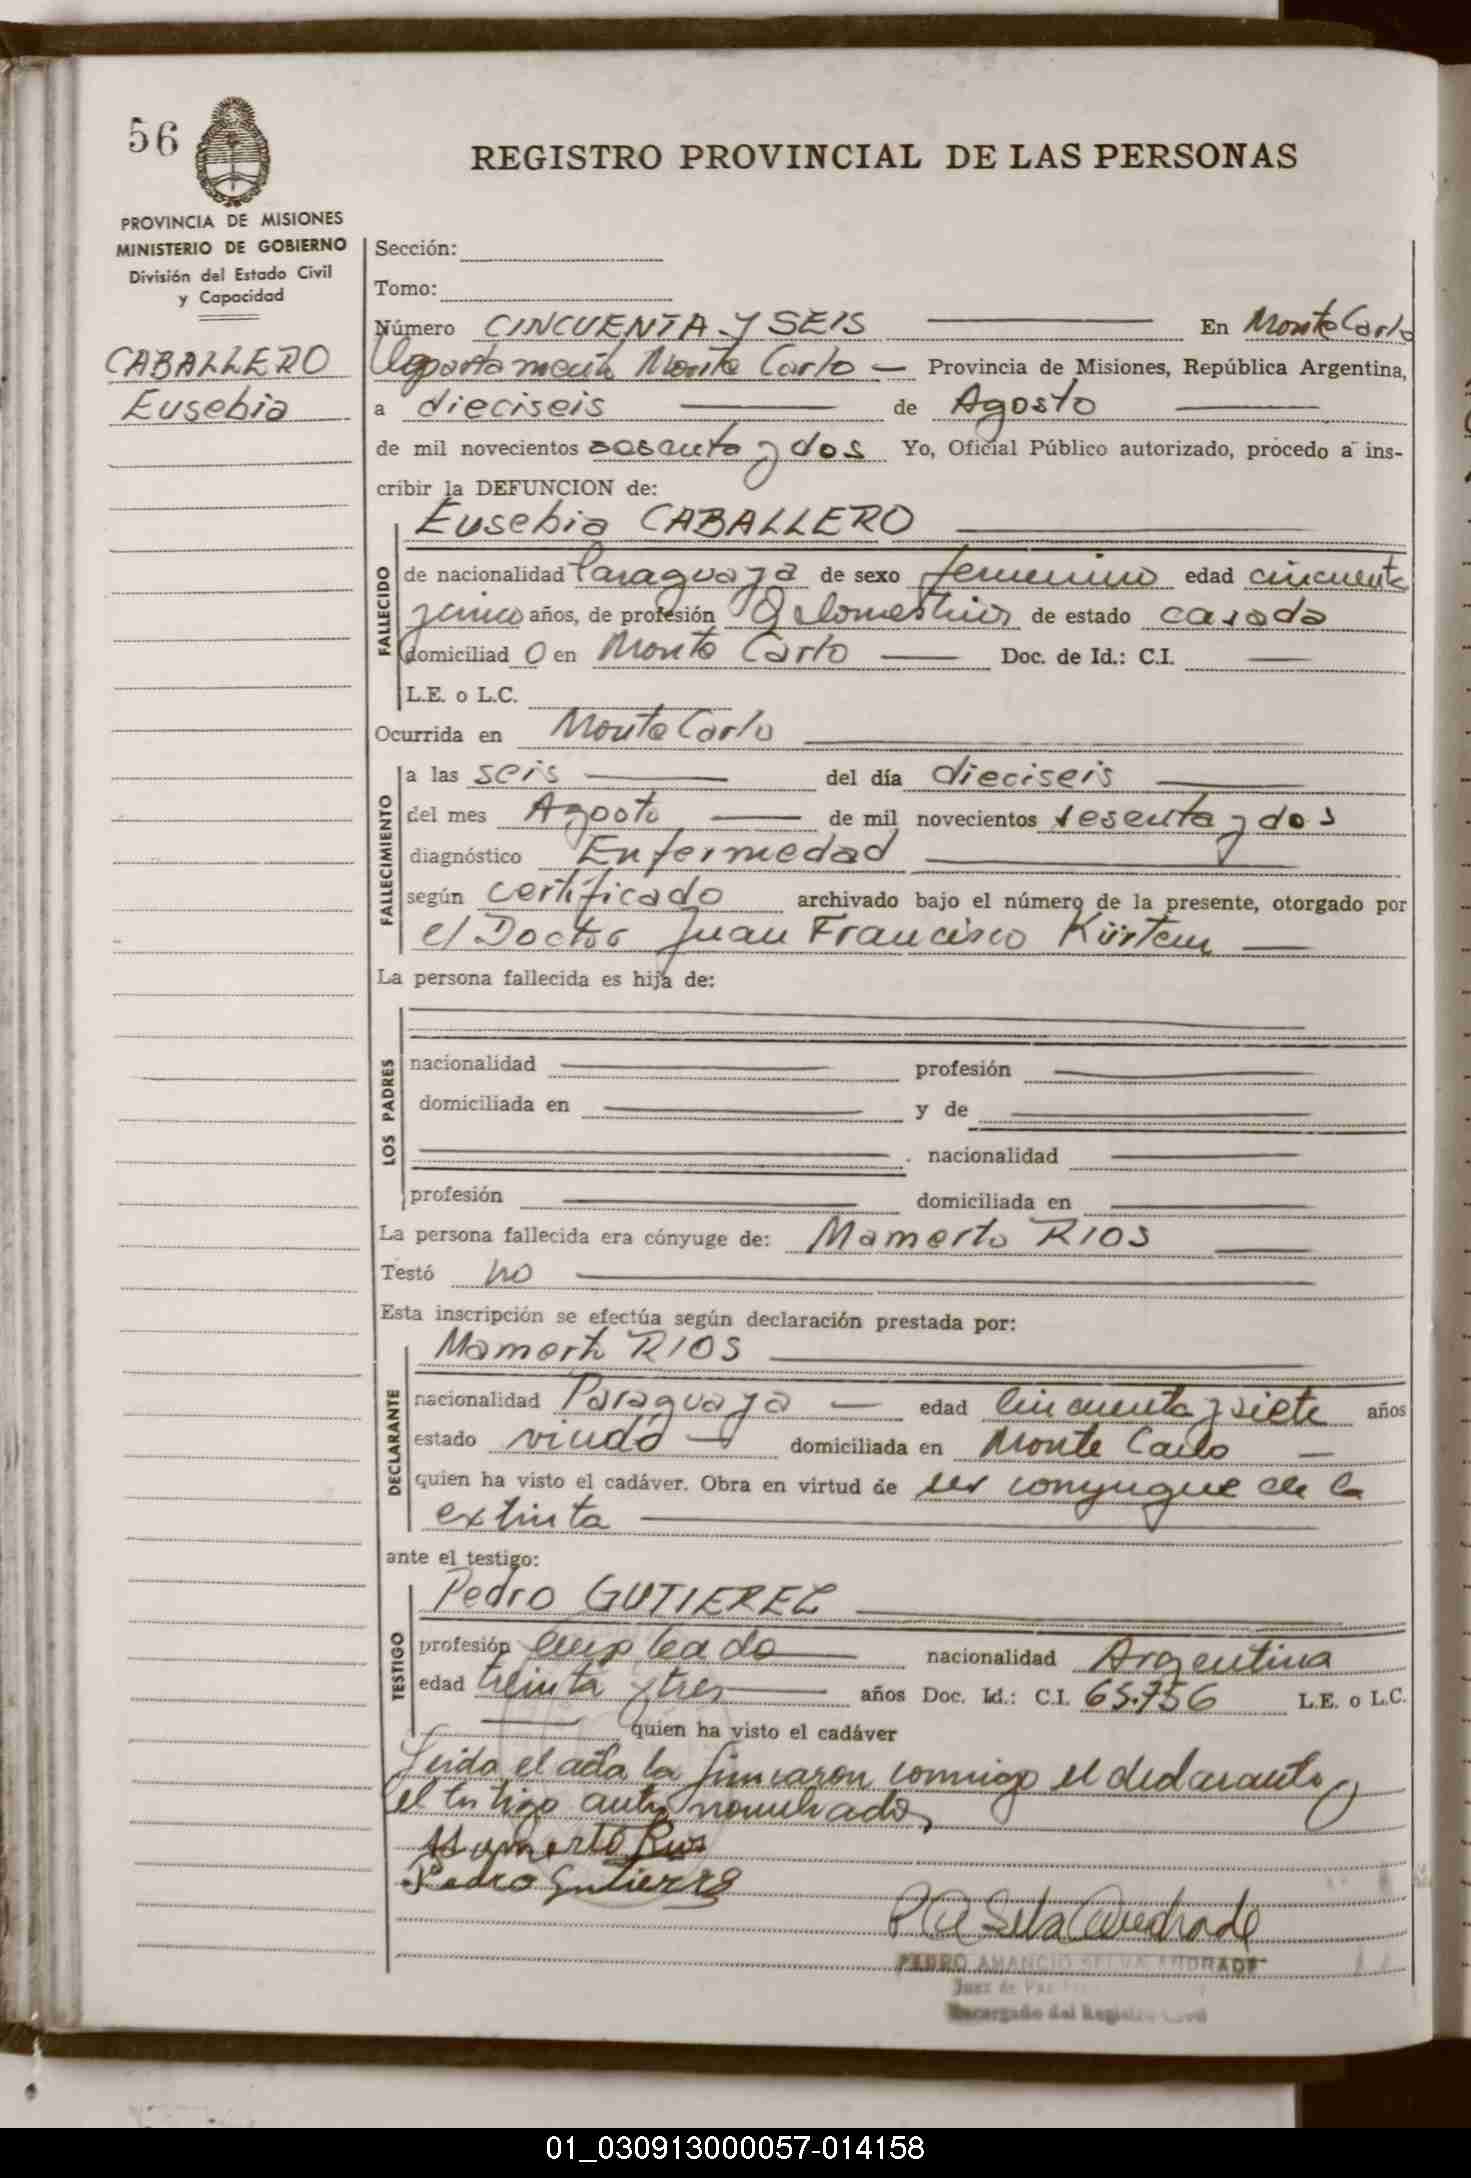 56
REGISTRO PROVINCIAL DE LAS PERSONAS
PROVINCIA DE MISIONES
MINISTERIO DE GOBIERNO
División del Estado Civil
y Capacidad
CABALLERO
Eusebia
Sección:
Tomo:
Número CINCUENTA Y SEIS En Monte Carlo
Departamento Monte Carlo Provincia de Misiones, República Argentina,
a dieciseis de Agosto
de mil novecientos sesenta y dos Yo, Oficial Público autorizado, procedo a ins-
cribir la DEFUNCION de:
Eusebia CABALLERO
FALLECIDO
de nacionalidad Paraguaya de sexo femenino edad cincuenta
y cinco años, de profesión Q domesticos de estado casada
domiciliad o en Monte Carlo Doc. de Id.: C.I.
L.E. o L.C.
Ocurrida en Monte Carlo
FALLECIMIENTO
a las seis del día dieciseis
del mes Agosto de mil novecientos sesenta y dos
diagnóstico Enfermedad
según certificado archivado bajo el número de la presente, otorgado por
el Doctor Juan Francisco Kürten
La persona fallecida es hija de:
LOS PADRES
nacionalidad profesión
domiciliada en y de
nacionalidad
profesión domiciliada en
La persona fallecida era cónyuge de: Mamerto RIOS
Testó no
Esta inscripción se efectúa según declaración prestada por:
Mamerto RIOS
DECLARANTE
nacionalidad Paraguaya edad cincuenta y siete años
estado viudo domiciliada en Monte Carlo
quien ha visto el cadáver. Obra en virtud de ser conyugue de la
extinta
ante el testigo:
Pedro GUTIEREZ
TESTIGO
profesión empleado nacionalidad Argentina
edad treinta y tres años Doc. Id.: C.I. 65.756 L.E. o L.C.
quien ha visto el cadáver
Leida el acta la firmaron conmigo el declarante y
el testigo antes nombrados
Mamerto Rios
Pedro Gutierre
P A Selva Andrade
PEDRO AMANCIO SELVA ANDRADE
Juez de Paz
Encargado del Registro Civil
01_030913000057-014158